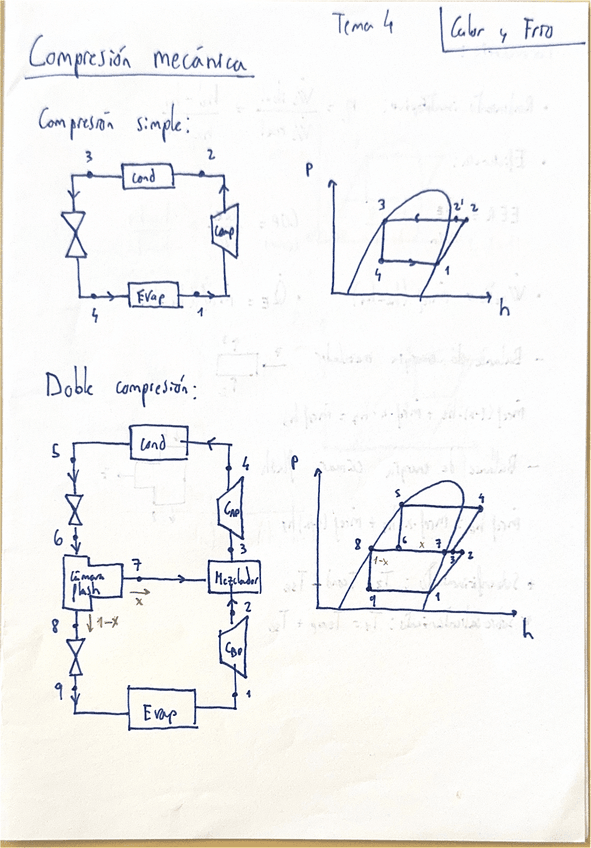 Tema 4
Calor y Frío
Compresión mecánica
Compresión simple:
3
Cond
2
Comp
4
Evap
1
P
3
2'
2
4
1
h
Doble compresión:
5
Cond
4
CAP
6
3
Cámara
flash
7
x
Mezclador
8
1-x
2
CBP
9
Evap
1
P
5
4
8
6
x
7
3
2
1-x
9
1
h